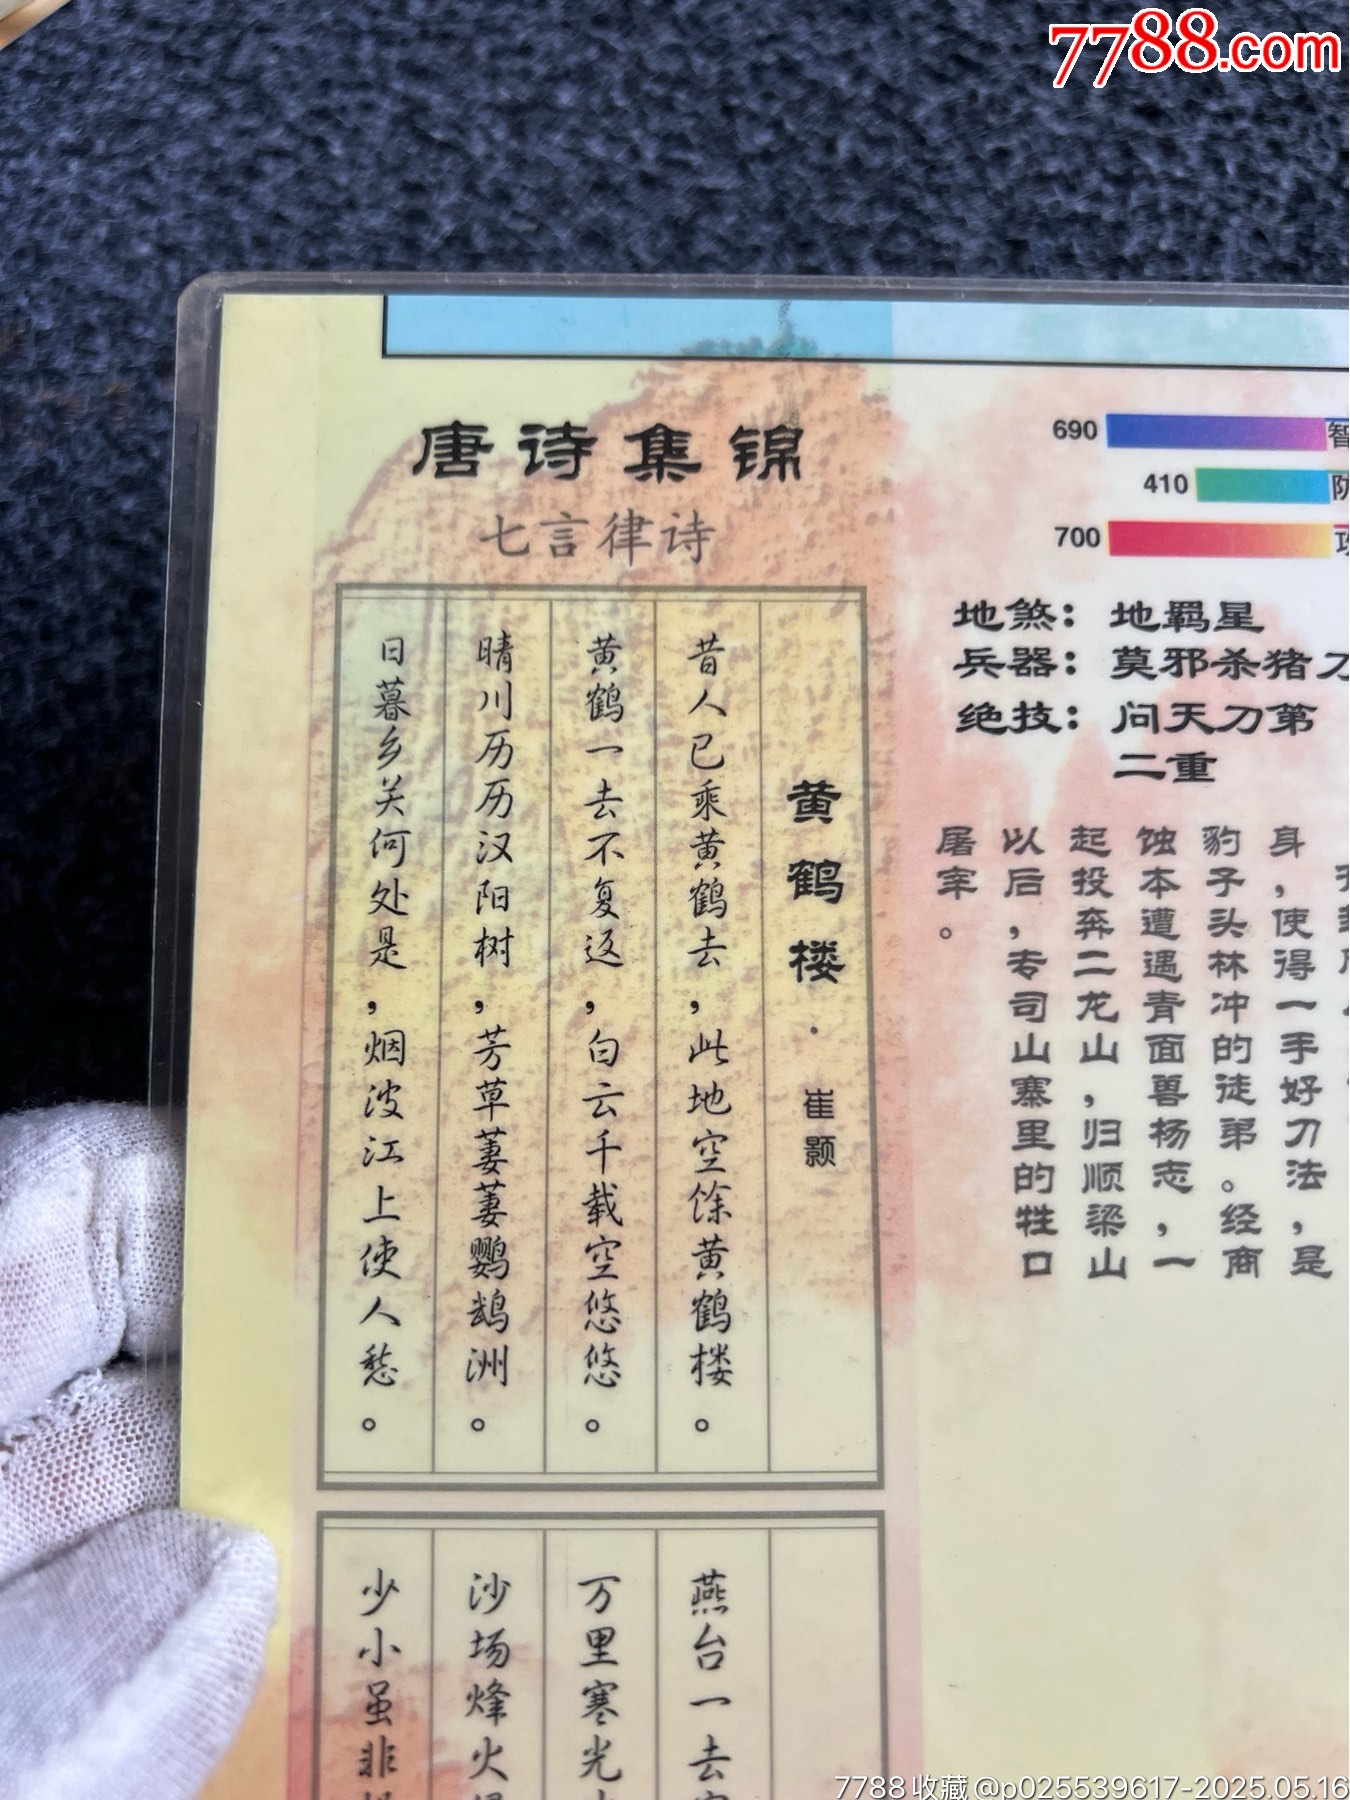 7788.com
唐诗集锦
七言律诗
黄鹤楼·崔颢
昔人已乘黄鹤去，此地空馀黄鹤楼。
黄鹤一去不复返，白云千载空悠悠。
晴川历历汉阳树，芳草萋萋鹦鹉洲。
日暮乡关何处是，烟波江上使人愁。
燕台一去
万里寒光
沙场烽火
少小虽非
690
410
700
地煞：地羁星
兵器：莫邪杀猪刀
绝技：问天刀第
二重
身，使得一手好刀法，是
豹子头林冲的徒弟。经商
蚀本遭遇青面兽杨志，一
起投奔二龙山，归顺梁山
以后，专司山寨里的牲口
屠宰。
7788收藏@p025539617-2025.05.16